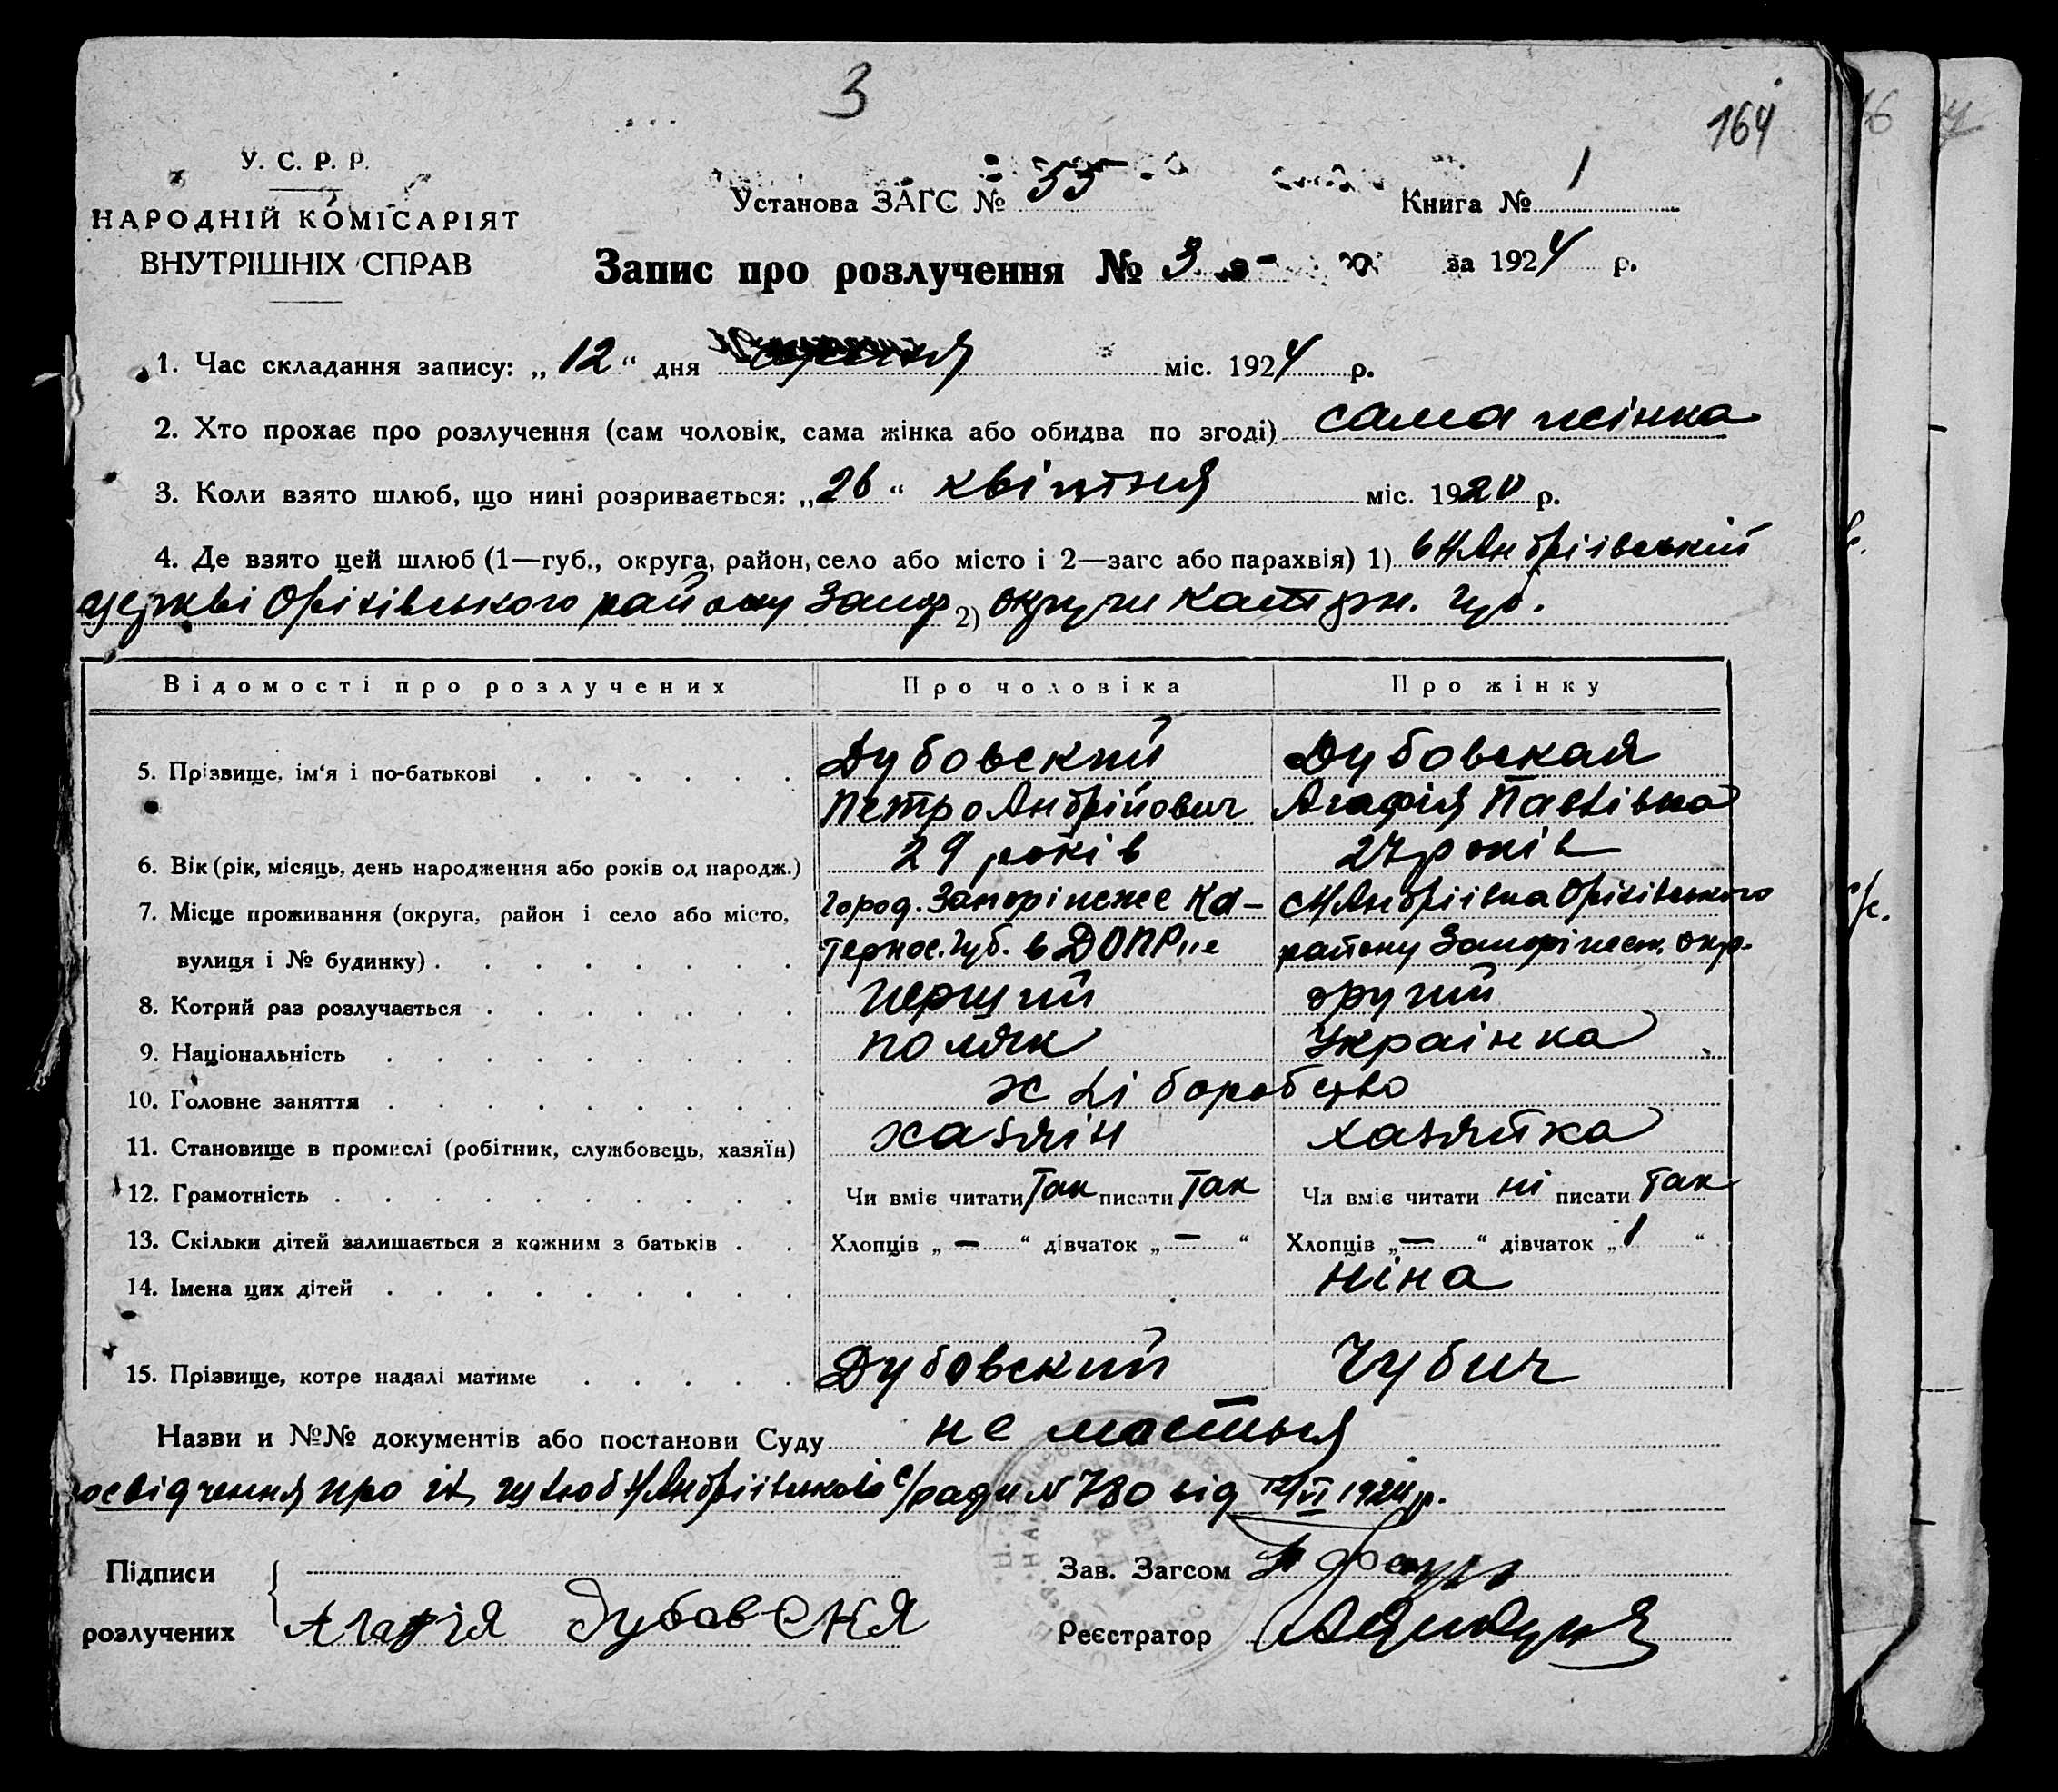 3
164
У. С. Р. Р.
НАРОДНІЙ КОМІСАРІЯТ
ВНУТРІШНІХ СПРАВ
Установа ЗАГС № 55
Книга № 1
Запис про розлучення № 3 за 1924 р.
1. Час складання запису: „12“ дня міс. 1924 р.
2. Хто прохає про розлучення (сам чоловік, сама жінка або обидва по згоді) сама жінка
3. Коли взято шлюб, що нині розривається: „26“ квітня міс. 1920 р.
4. Де взято цей шлюб (1—губ., округа, район, село або місто і 2—загс або парахвія) 1) в НАндріівський
церкві Оріхівського району Запор 2) округи Катерн. губ.
Відомості про розлучених Про чоловіка Про жінку
5. Прізвище, ім‘я і по-батькові Дубовский Дубовская
Петро Андрійович Агафія Павлівна
6. Вік (рік, місяць, день народження або років од народж.) 29 років 27 років
7. Місце проживання (округа, район і село або місто, город. Запоріжже Ка- с НАндріівка Оріхівського
вулиця і № будинку) терносл. губ. в ДОПРіе району Запоріжськ. окр.
8. Котрий раз розлучається перший другий
9. Національність поляк Украінка
10. Головне заняття хліборобство
11. Становище в промислі (робітник, службовець, хазяїн) хазяін хазяйка
12. Грамотність Чи вміє читати Так писати Так Чи вміє читати ні писати Так
13. Скільки дітей залишається з кожним з батьків Хлопців „—“ дівчаток „—“ Хлопців „—“ дівчаток „1“
14. Імена цих дітей Ніна
15. Прізвище, котре надалі матиме Дубовский Чубич
Назви и №№ документів або постанови Суду не мається
посвідчення про іх шлюб НАндріівськоі с/ради № 780 від 12/VI 1924 р.
Підписи
розлучених Агафія Дубовская
Зав. Загсом
Реєстратор